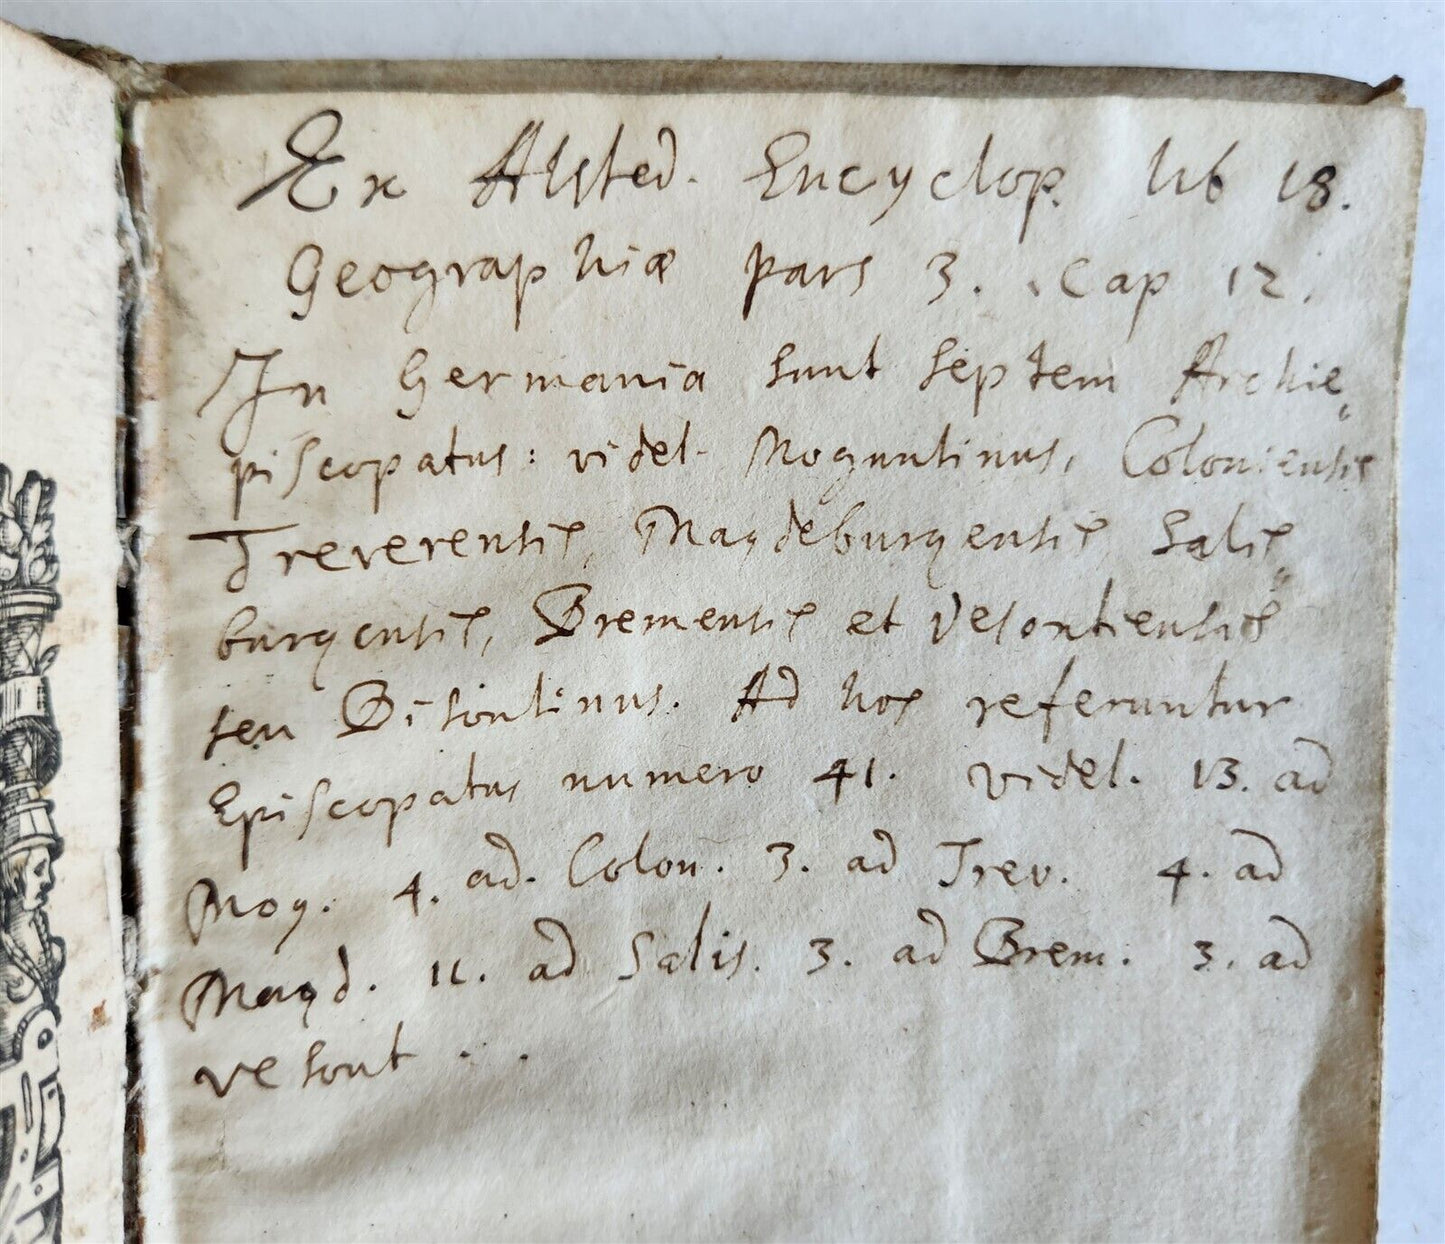 Ex Alsted. Encyclop. lib 18.
Geographiæ pars 3. Cap 12.
In Germania sunt septem Archie„
piscopatus: videl. Moguntinus, Coloniensis
Trevereensis, Magdeburgensis Salis„
burgensis, Bremensis et Vesontiensis
seu Bisontinus. Ad hos referuntur
Episcopatus numero 41. videl. 13. ad
Mog. 4. ad. Colon. 3. ad Trev. 4. ad
Magd. 11. ad Salis. 3. ad Brem. 3. ad
vesont . .